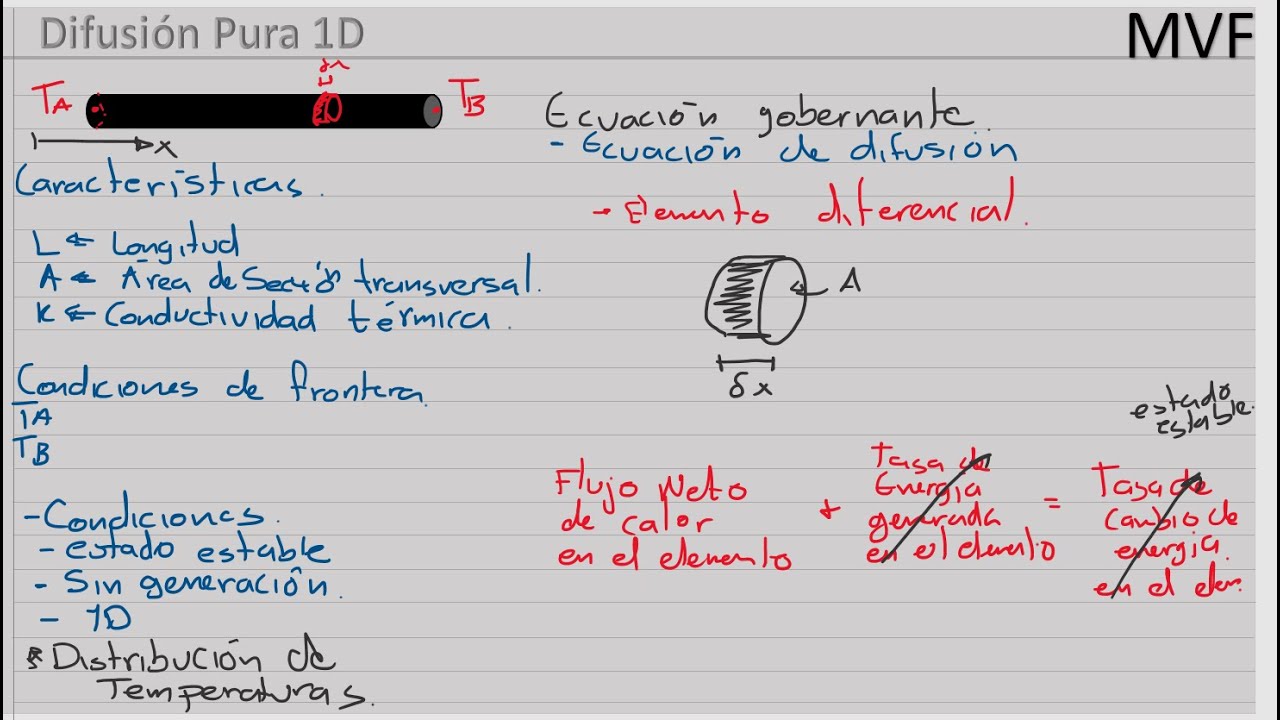 Difusión Pura 1D
MVF
TA
δx
TB
x
Características.
L ← Longitud
A ← Área de Sección transversal.
K ← Conductividad térmica.
Condiciones de frontera.
TA
TB
- Condiciones.
- estado estable
- Sin generación.
- 1D
* Distribución de
Temperaturas.
Ecuación gobernante.
- Ecuación de difusión
→ Elemento diferencial.
A
δx
estado
estable.
Flujo Neto
de calor
en el elemento
+
Tasa de
Energía
generada
en el elemento
=
Tasa de
cambio de
energía.
en el elem.